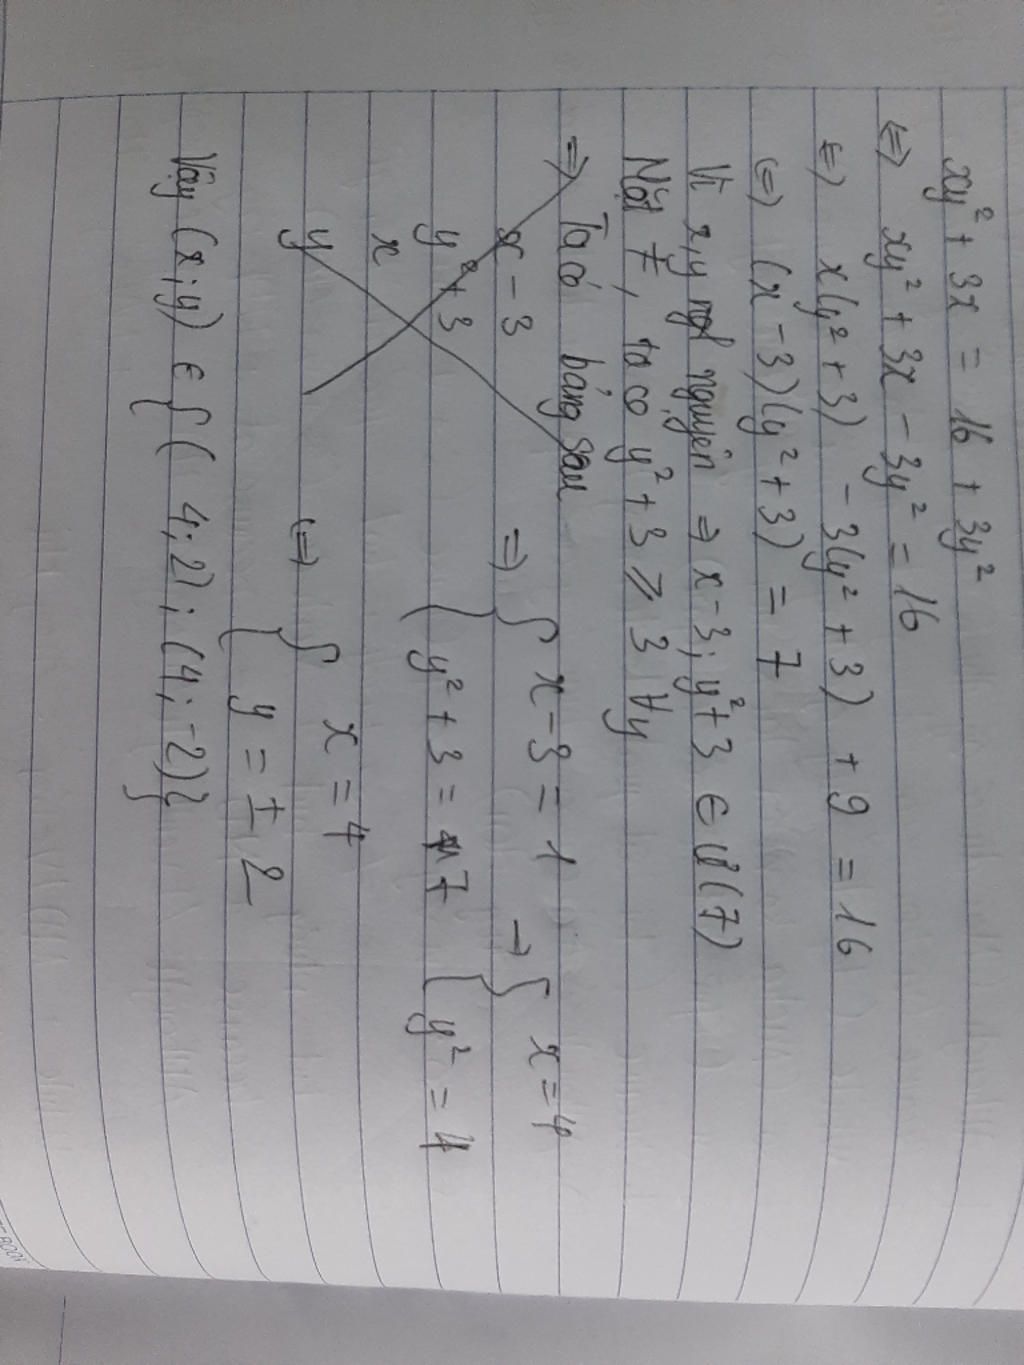 xy² + 3x = 16 + 3y²
⇔ xy² + 3x - 3y² = 16
⇔ x(y² + 3) - 3(y² + 3) + 9 = 16
⇔ (x - 3)(y² + 3) = 7
Vì x, y nguyên ⇒ x - 3; y² + 3 ∈ Ư(7)
Mặt ≠, ta có y² + 3 ⩾ 3 ∀y
⇒ Ta có bảng sau
x - 3 ⇒ { x - 3 = 1 → { x = 4
y² + 3 { y² + 3 = 7 { y² = 4
x
y ⇔ { x = 4
{ y = ± 2
Vậy (x; y) ∈ {(4; 2); (4; -2)}